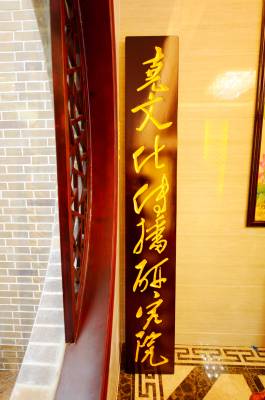 尧文化传播研究院